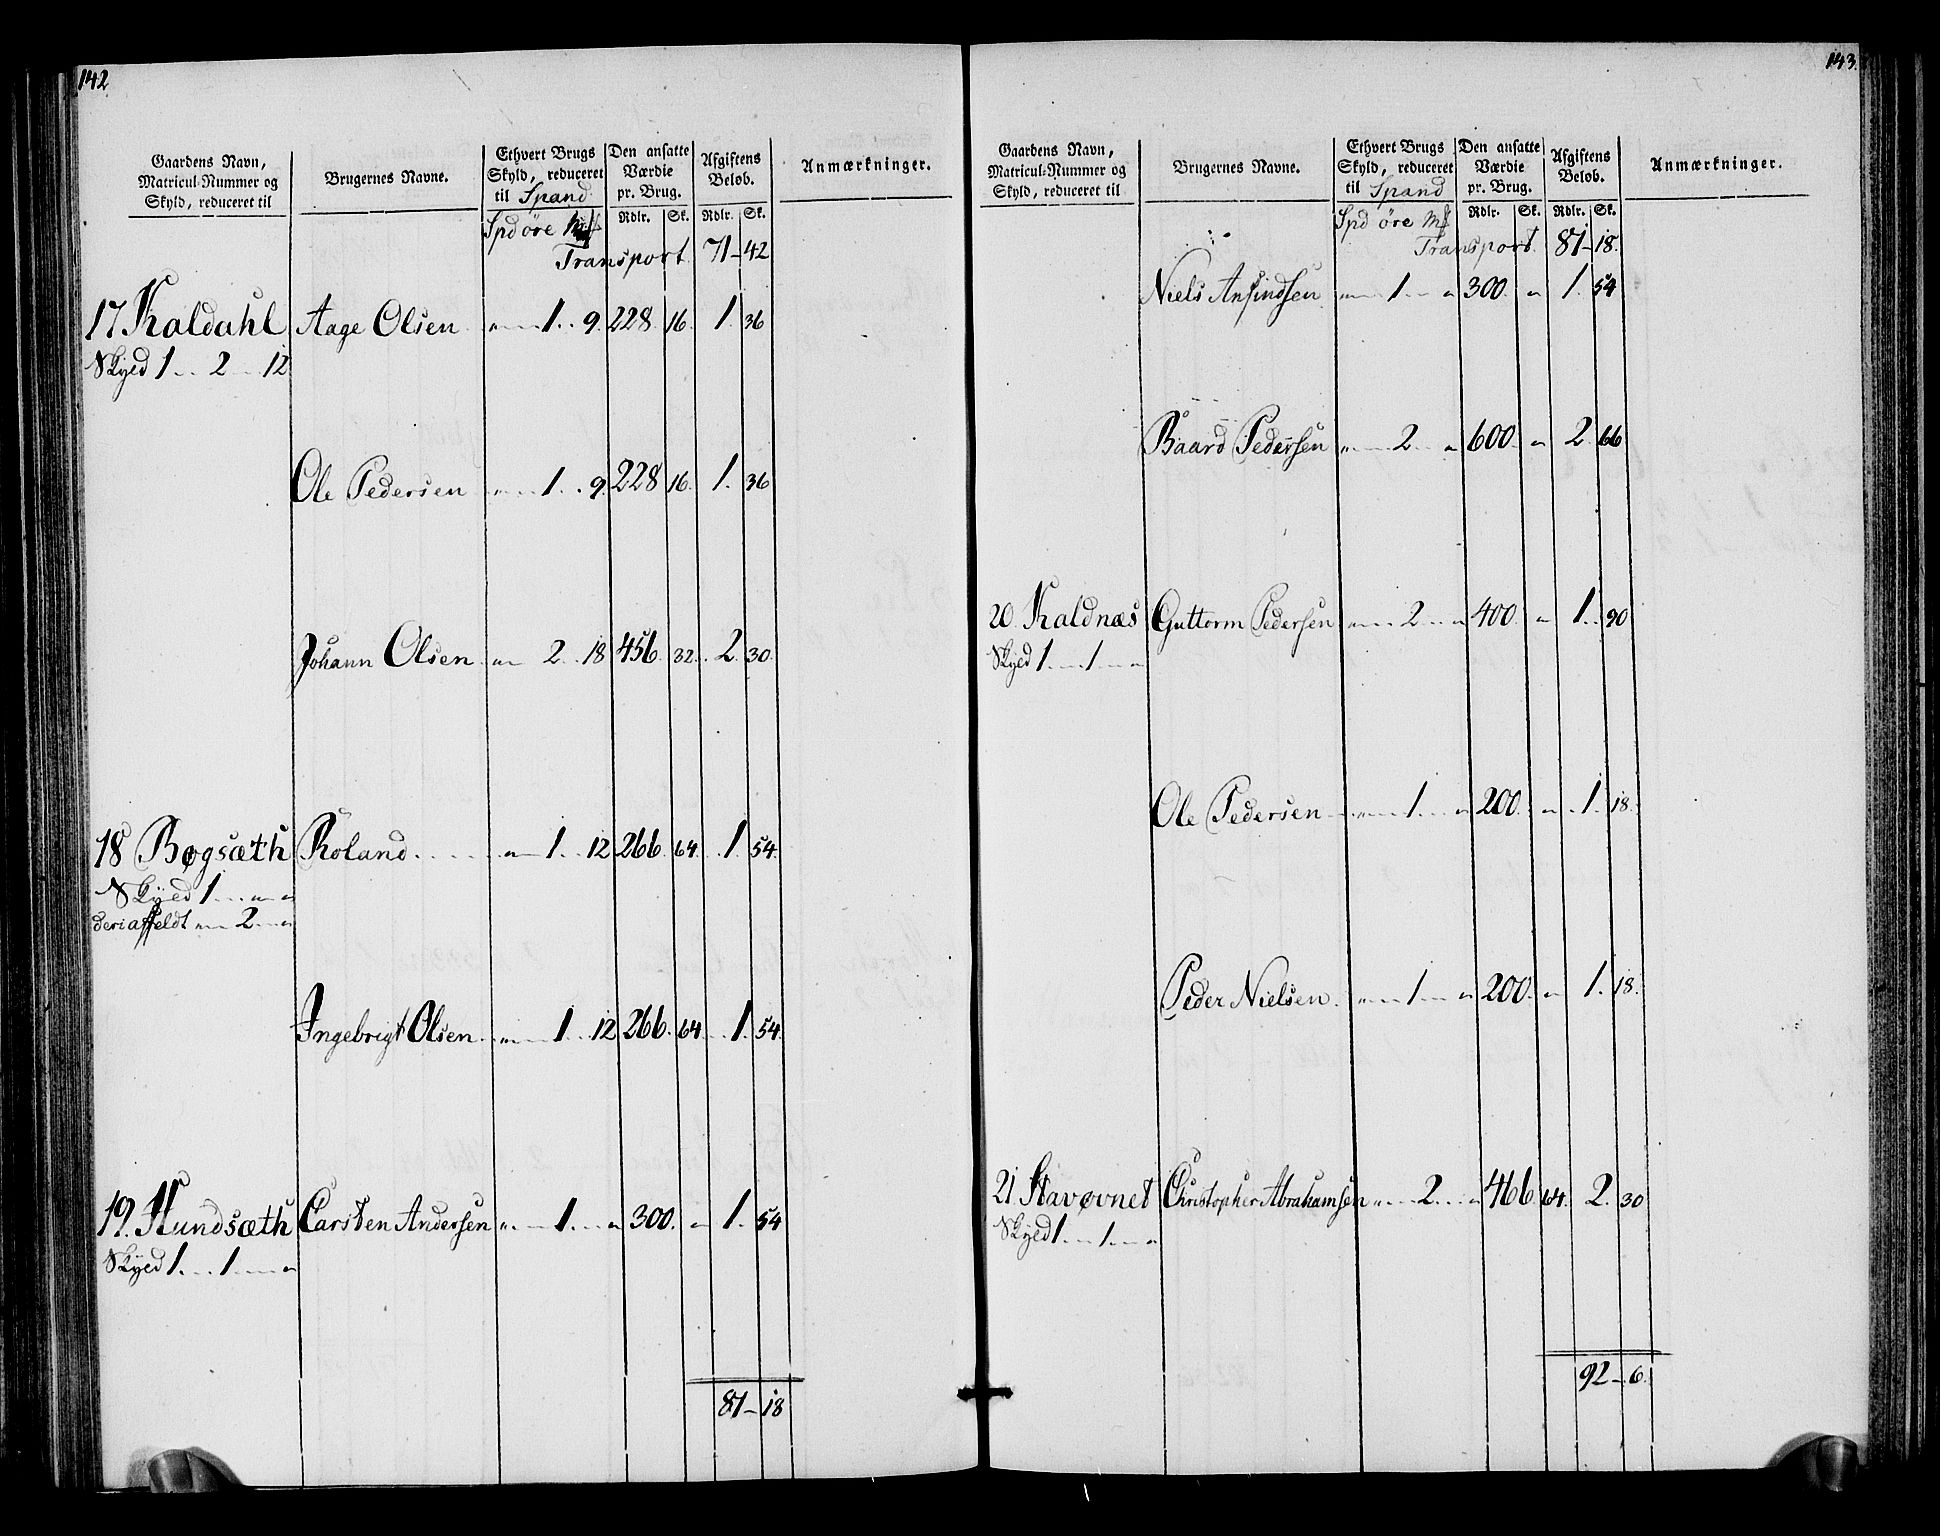 142
Gaardens Navn, Matricul-Nummer og Skyld, reduceret til
Brugernes Navne.
Ethvert Brugs Skyld, reduceret til Spand
Den ansatte Værdie pr. Brug.
Afgiftens Beløb.
Anmærkninger.
Spd öre
Rdlr. Sk. Rdlr. Sk.
Transport 71 - 42
17 Kaldahl Aage Olsen " 1 9 228 16 1 36
Skyld 1 2 12
Ole Pedersen " 1 9 228 16 1 36
Johann Olsen " 2 18 456 32 2 30
18 Bøgsæth Roland " 1 12 266 64 1 54
Skyld 1 " "
deri affeldt " 2 "
Ingebrigt Olsen " 1 12 266 64 1 54
19. Hundsæth Carsten Andersen " 1 " 300 " 1 54
Skyld 1 1 "
87 - 18
143
Gaardens Navn, Matricul-Nummer og Skyld, reduceret til
Brugernes Navne.
Ethvert Brugs Skyld, reduceret til Spand
Den ansatte Værdie pr. Brug.
Afgiftens Beløb.
Anmærkninger.
Spd öre
Rdlr. Sk. Rdlr. Sk.
Transport 81 - 18
Niels Ansindsen " 1 " 300 " 1 54
Baard Pedersen " 2 " 600 " 2 66
20 Kaldnæs Guttorm Pedersen " 2 " 400 " 1 90
Skyld 1 1 "
Ole Pedersen " 1 " 200 " 1 18
Peder Nielsen " 1 " 200 " 1 18
21 Stavøvnet Christopher Abrahamsen " 2 " 466 64 2 30
Skyld 1 1 "
92 - 6